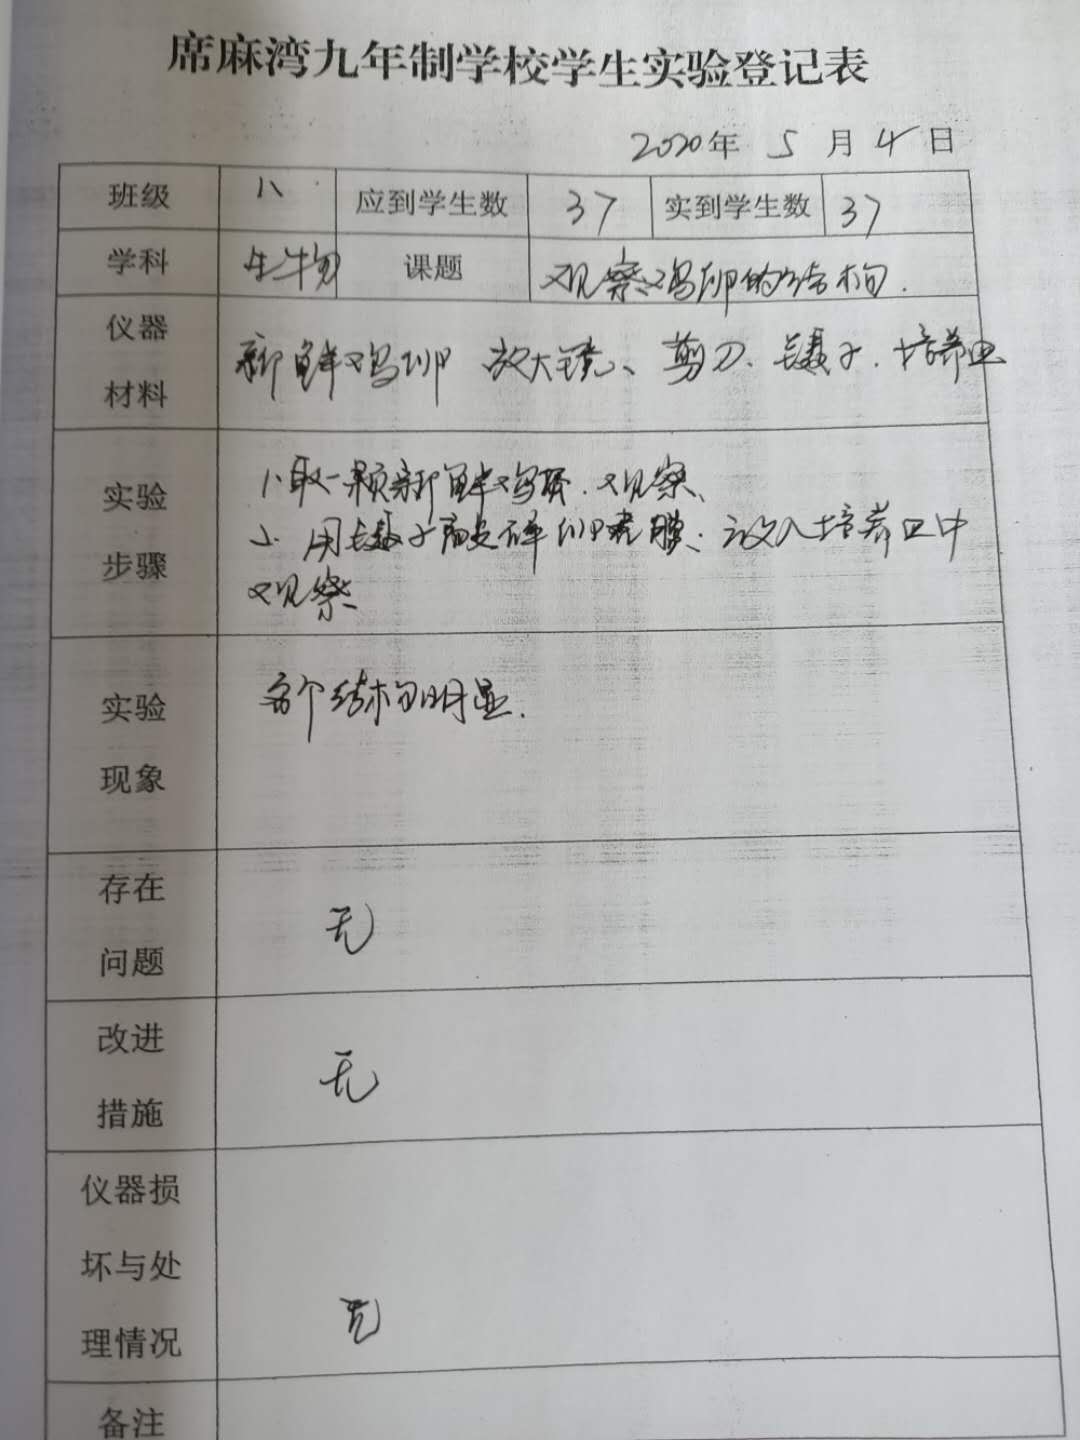 席麻湾九年制学校学生实验登记表
2020年 5 月 4 日
班级 八 应到学生数 37 实到学生数 37
学科 生物 课题 观察鸡卵的结构.
仪器
材料
新鲜鸡卵 放大镜、剪刀、镊子、培养皿
实验
步骤
1、取一颗新鲜鸡蛋、观察、
2、用镊子敲碎卵壳膜、放入培养皿中
观察、
实验
现象
各个结构明显.
存在
问题
无
改进
措施
无
仪器损
坏与处
理情况
无
备注